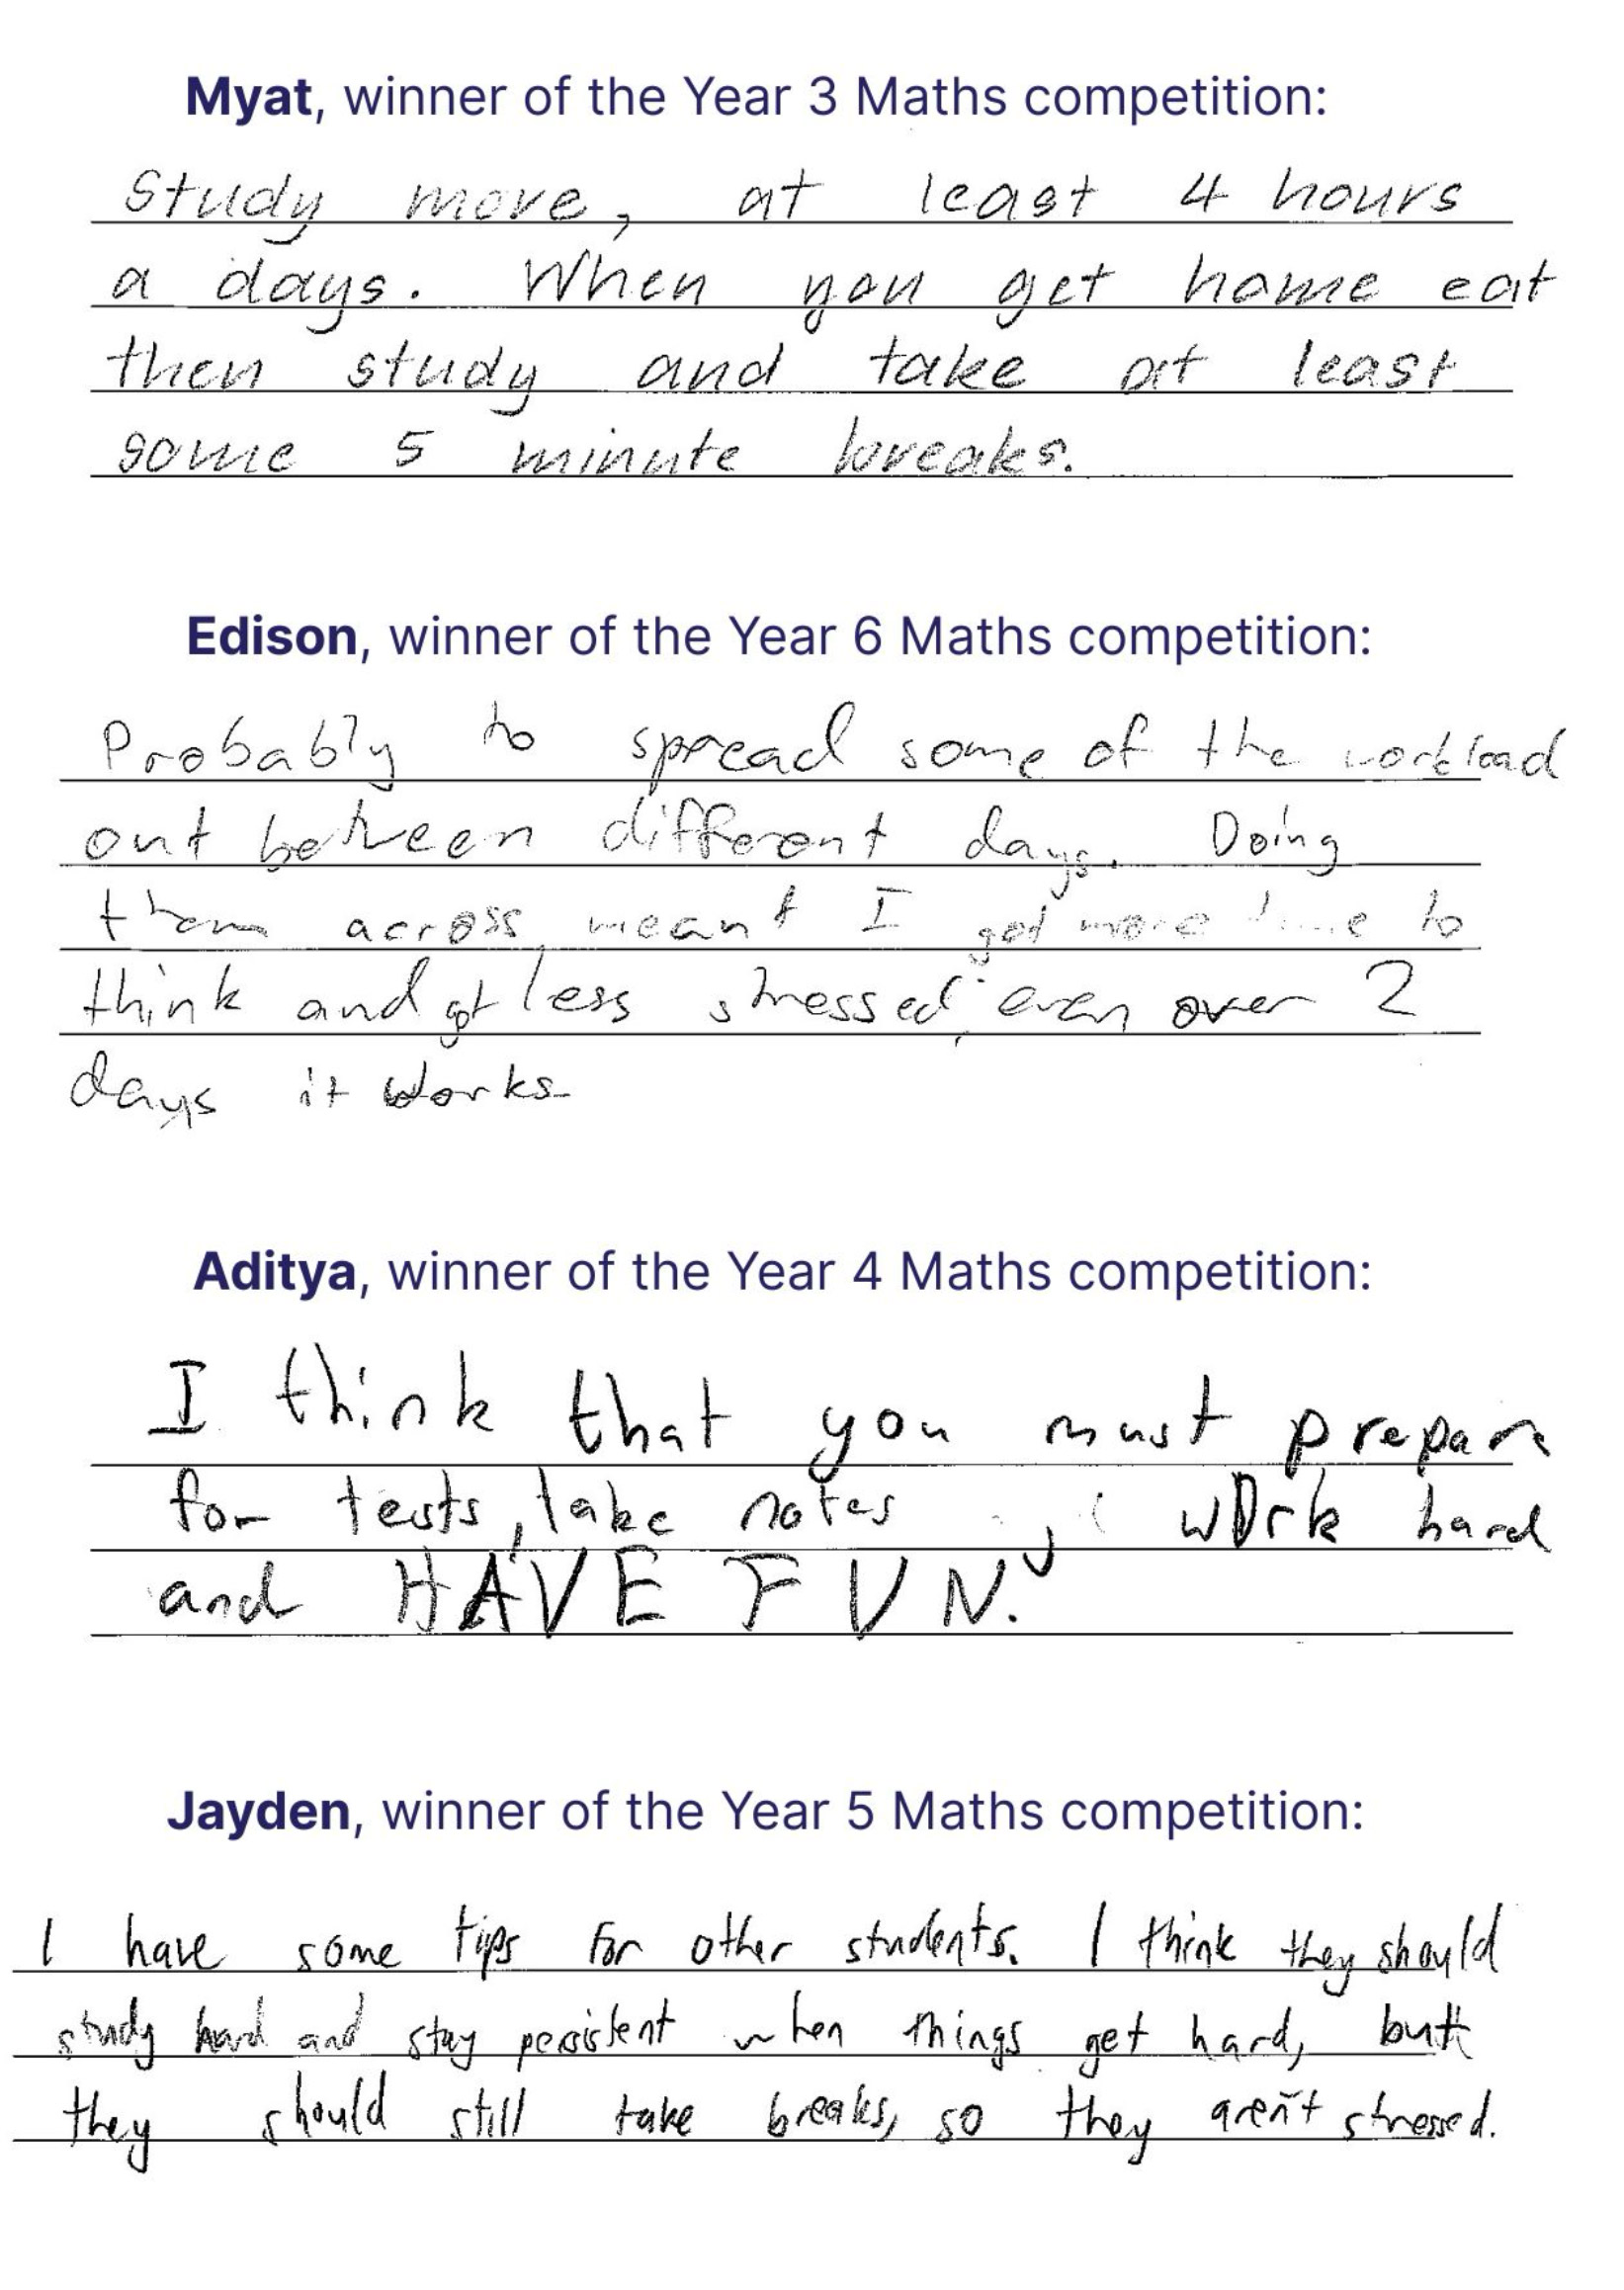 Myat, winner of the Year 3 Maths competition:
Study more, at least 4 hours
a days. When you get home eat
then study and take at least
some 5 minute breaks.
Edison, winner of the Year 6 Maths competition:
Probably to spread some of the workload
out between different days. Doing
them across meant I got more to
think and got less stressed, even over 2
days it works
Aditya, winner of the Year 4 Maths competition:
I think that you must prepare
for tests, take notes, work hard
and HAVE FUN.
Jayden, winner of the Year 5 Maths competition:
I have some tips for other students. I think they should
study hard and stay persistent when things get hard, but
they should still take breaks, so they aren't stressed.